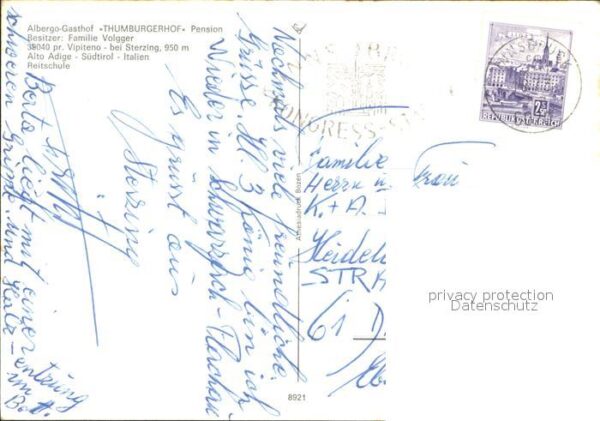 Albergo-Gasthof «THUMBURGERHOF» Pension
Besitzer: Familie Volgger
39040 pr. Vipiteno - bei Sterzing, 950 m
Alto Adige - Südtirol - Italien
Reitschule
Nochmals viele freundliche
Grüsse. Hl. 3 König bin ich
Wieder in Schwarzach-Flachau
Es grüsst aus
Sterzing
Berta liegt mit einer
schweren Grippe und Halz-
entzung
im
KONGRESS-
2.50
REPUBLIK ÖSTERREICH
Familie
Herrn u. Frau
K. + A.
Heidel
STRA
61 D.
Athesiadruck Bozen
8921
privacy protection
Datenschutz